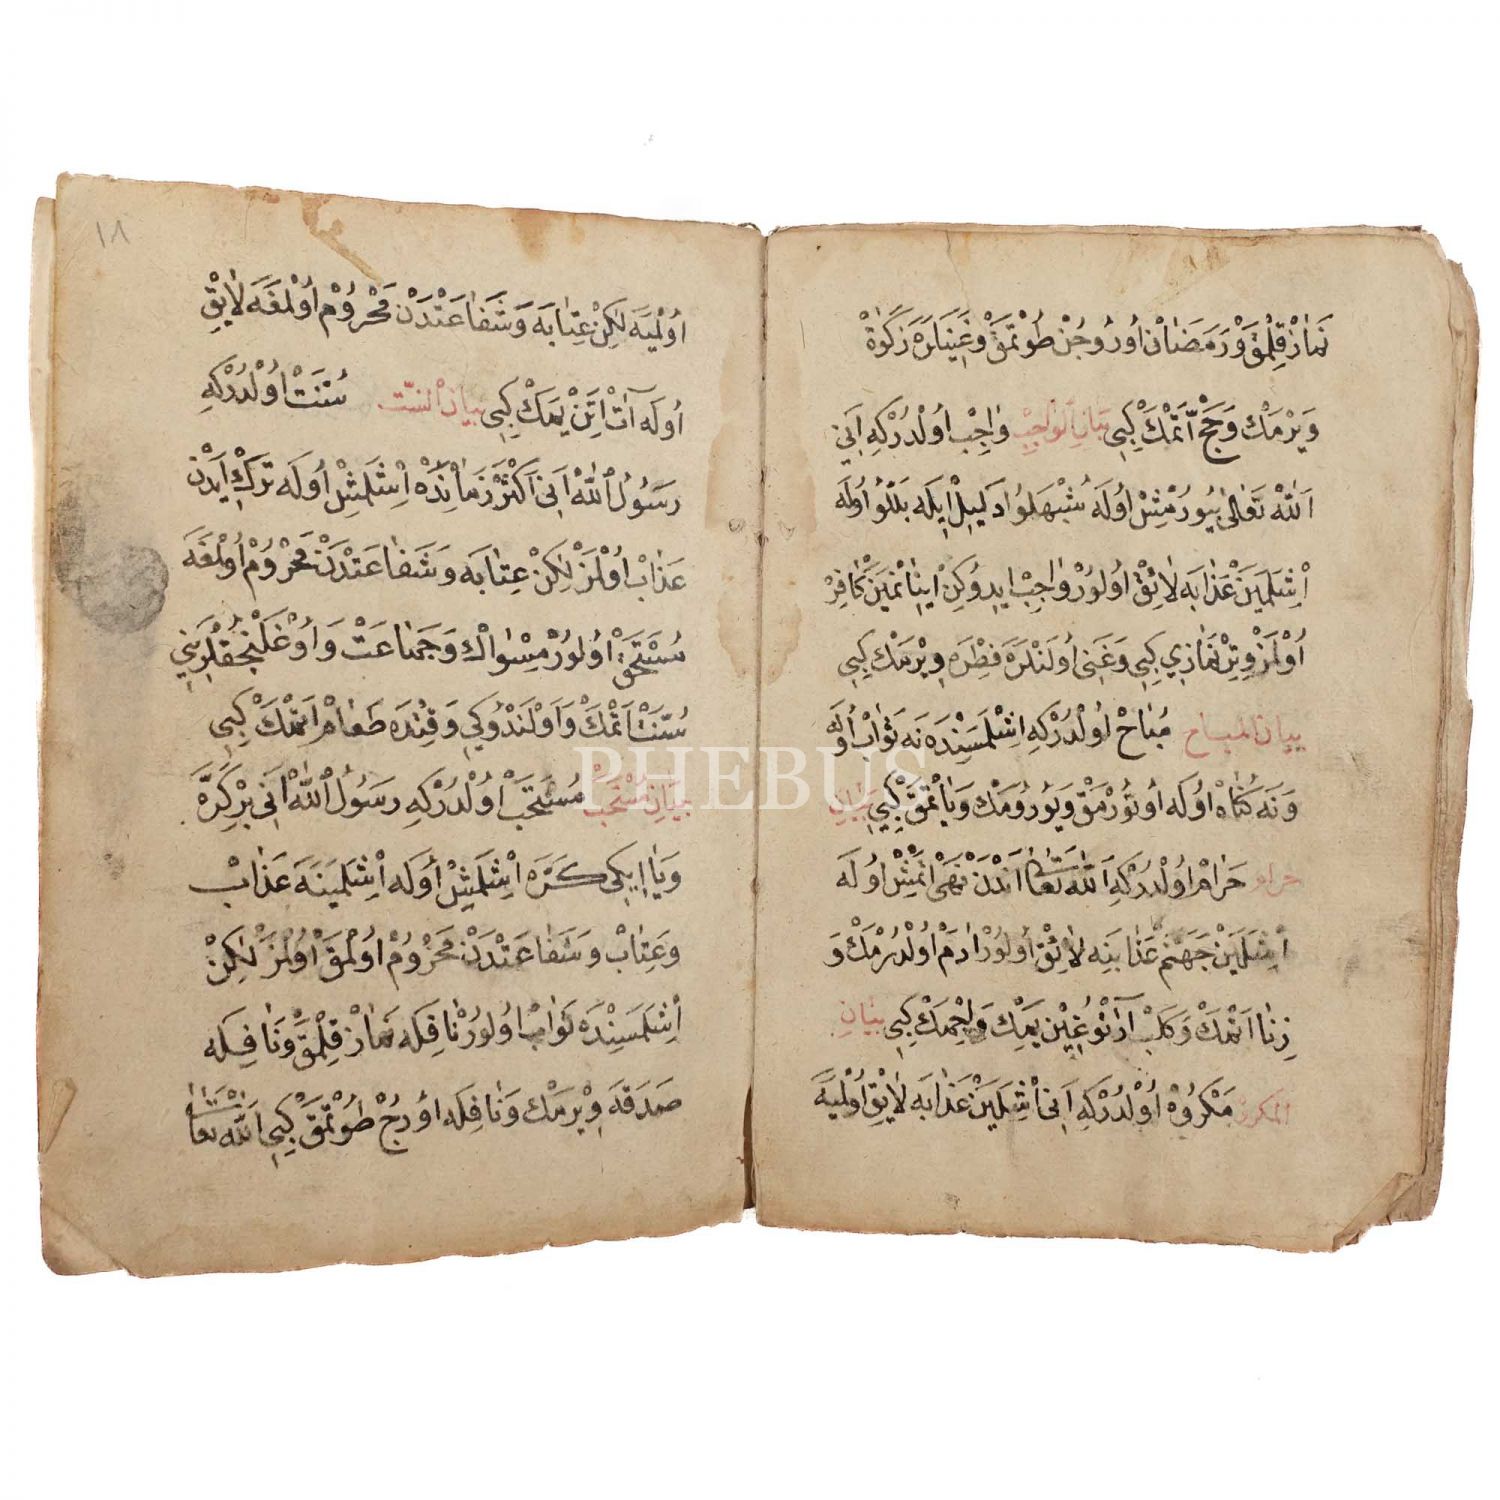 نَمَازْ قِلْمَقْ وَرَمَضَانْ اُورُوجُنْ طُوتْمَقْ وَغَنِيَّلَرَه زَكٰوةْ
وَيرْمَكْ وَحَجّ اَتْمَكْ كِبِي بَيَانِ الْوَاجِبْ وَاجِبْ اُولْدُرْكِه اَنِي
اَللّٰهْ تَعَالٰى بُيُورْمُشْ اُولَه شُبْهَلُو دَلِيلْ اِيلَه بَلْلُو اُولَه
اِشْلَمَيَنْ عَذَابَه لَايِقْ اُولُورْ وَاجِبْ ايدُوكِنْ اينَانْمَيَنْ كَافِرْ
اُوْلْمَزْ وِتِرْ نَمَازِي كِبِي وَغَنِي اُولَنْلَرَه فِطْرَه وِيرْمَكْ كِبِي
بيان المباح مُبَاحْ اُولْدُرْكِه اِشْلَمَسِنْدَه نَه ثَوَابْ اُولَه
وَنَه كُنَاهْ اُولَه اُوتُورْمَقْ وَيُورُومَكْ وَيَاتْمَقْ كِبِي بَيَانِ
حرام حَرَامْ اُولْدُرْكِه اَللّٰه تَعَالٰى اَنْدَنْ نَهْىْ اتْمِشْ اُولَه
اِشْلَيَنْ جَهَنَّمْ عَذَابِنَه لَايِقْ اُولُورْ ادَمْ اُولْدُرْمَكْ وَ
زِنَا اَتْمَكْ وَكَلْبْ اَدْتُوغِينْ يمَكْ وَاِچْمَكْ كِبِي بَيَانِ
المكروه مَكْرُوهْ اُوْلْدُرْكِه اَنِي اِشْلَيَنْ عَذَابَه لَايِقْ اُوْلْمَيَه
١٨
اُوْلْمَيَه لٰكِنْ عِتَابَه وَشَفَاعَتْدَنْ مَحْرُومْ اُوْلْمَغَه لَايِقْ
اُولَه آتْ اَتِنْ يمَكْ كِبِي بيان السنّت سُنَّتْ اُوْلْدُرْكِه
رَسُولُ اللّٰهْ اَنِي اَكْثَرْ زَمَانْدَه اِشْلَمِشْ اُولَه تَرْكْ ايدَنْ
عَذَابْ اُوْلْمَزْ لٰكِنْ عِتَابَه وَشَفَاعَتْدَنْ مَحْرُومْ اُوْلْمَغَه
مُسْتَحَقْ اُولُورْ مِسْوَاكْ وَجَمَاعَتْ وَاُوْغْلَنْجُقْلَرِينِي
سُنَّتْ اَتْمَكْ وَاَوْلَنْدُوكِي وَقِتْدَه طَعَامْ اَتْمَكْ كِبِي
بَيَانِ مُسْتَحَبْ مُسْتَحَبّْ اُوْلْدُرْكِه رَسُولُ اللّٰهْ اَنِي بِرْ كَرَّه
وَيَا اِيكِي كَرَّه اِشْلَمِشْ اُولَه اِشْلَمَيَنَه عَذَابْ
وَعِتَابْ وَشَفَاعَتْدَنْ مَحْرُومْ اُوْلْمَقْ اُوْلْمَزْ لٰكِنْ
اِشْلَمَسِنْدَه ثَوَابْ اُولُورْ نَافِلَه نَمَازْ قِلْمَقْ وَنَافِلَه
صَدَقَه وِيرْمَكْ وَنَافِلَه اُورُجْ طُوتْمَقْ كِبِي اَللّٰه تَعَالٰى
PHEBUS